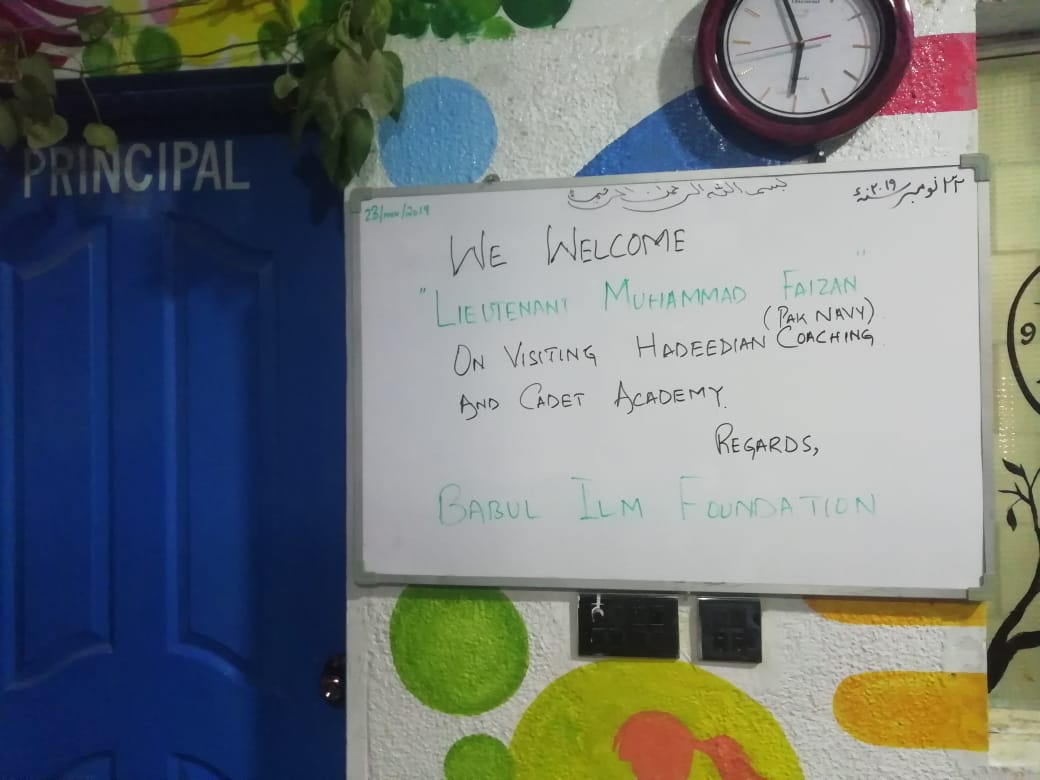 PRINCIPAL
23/nov/2019
بسم اللہ الرحمن الرحیم
نومبر ۲۰۱۹ء
WE WELCOME
"LIEUTENANT MUHAMMAD FAIZAN"
(PAK NAVY)
ON VISITING HADEEDIAN COACHING
AND CADET ACADEMY.
REGARDS,
BABUL ILM FOUNDATION
9